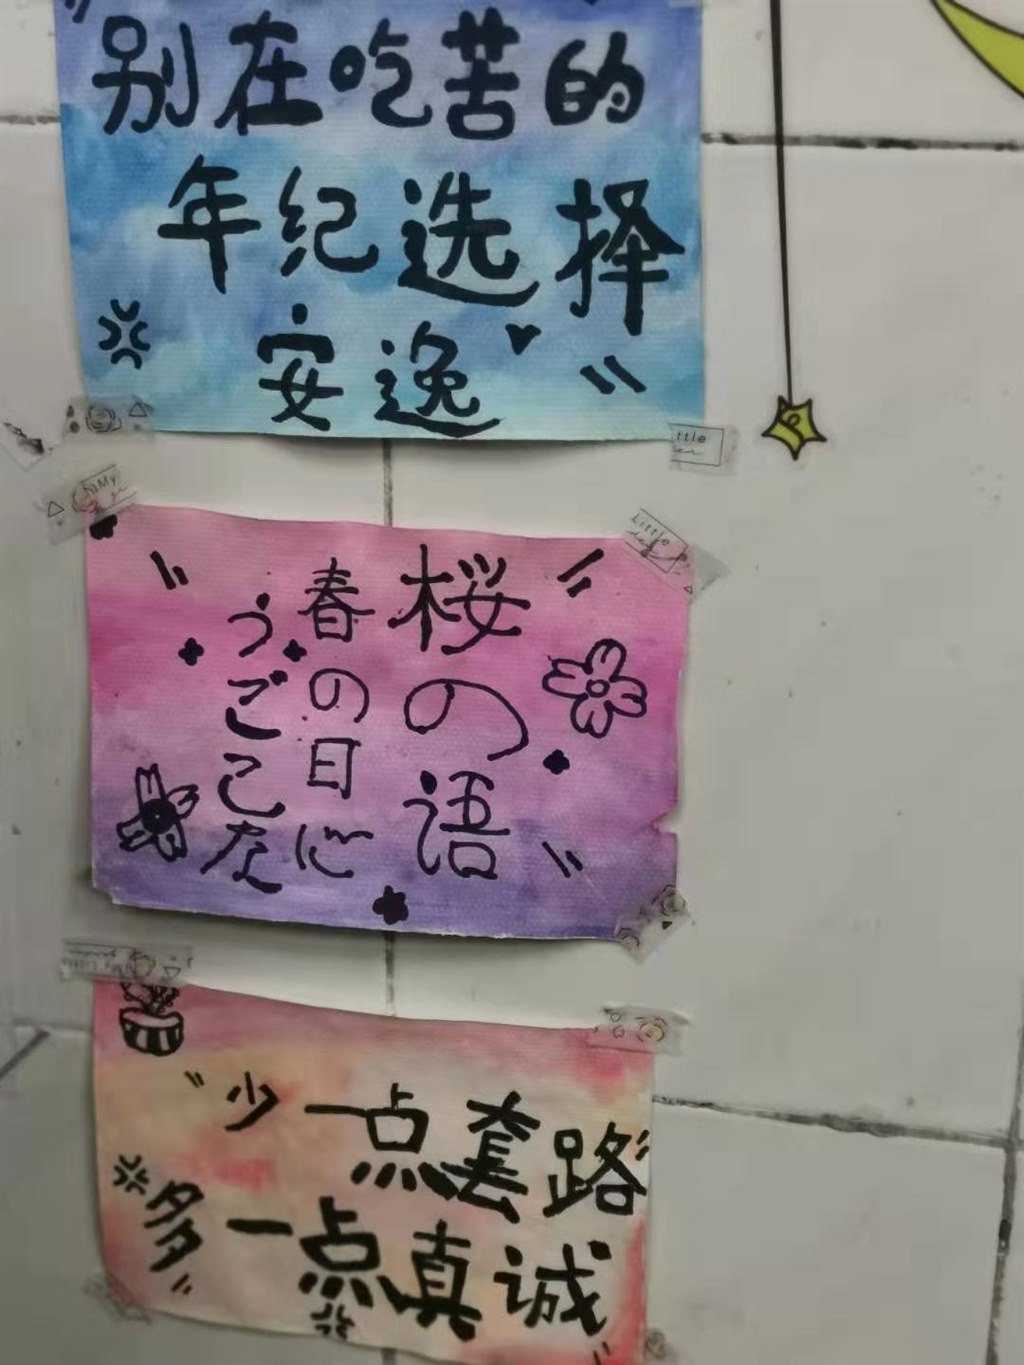 别在吃苦的
年纪选择
安逸
ttle
My
Little
桜の语
春の日心
うごこな
My Little
garden
少一点套路
多一点真诚